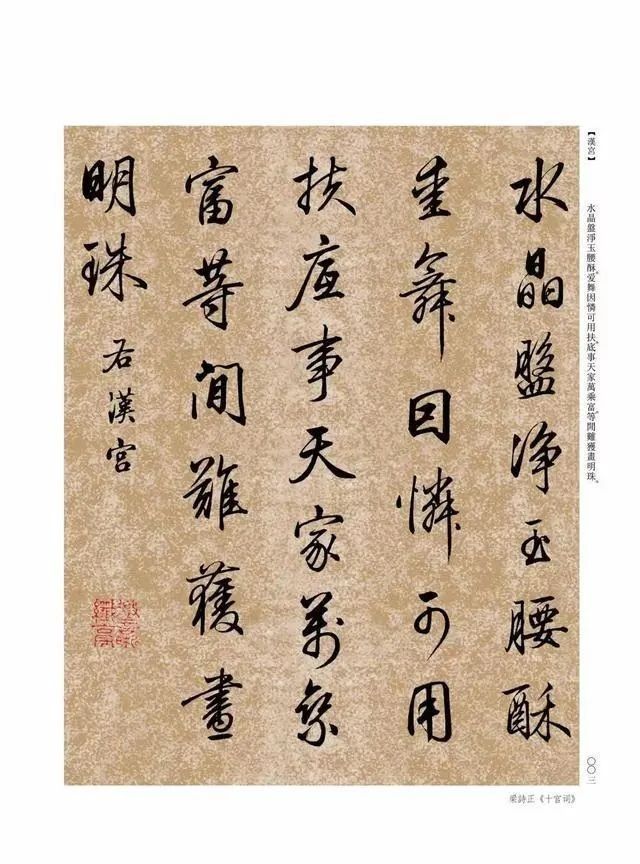 【漢宮】
水晶盤淨玉腰酥。爱舞因憐可用扶。底事天家萬乘富。等閒難獲畫明珠。
水晶盤浄玉腰酥
爱舞因憐可用
扶底事天家萬乘
富等閒難獲畫
明珠右漢宮
〇〇三
梁詩正《十宮词》